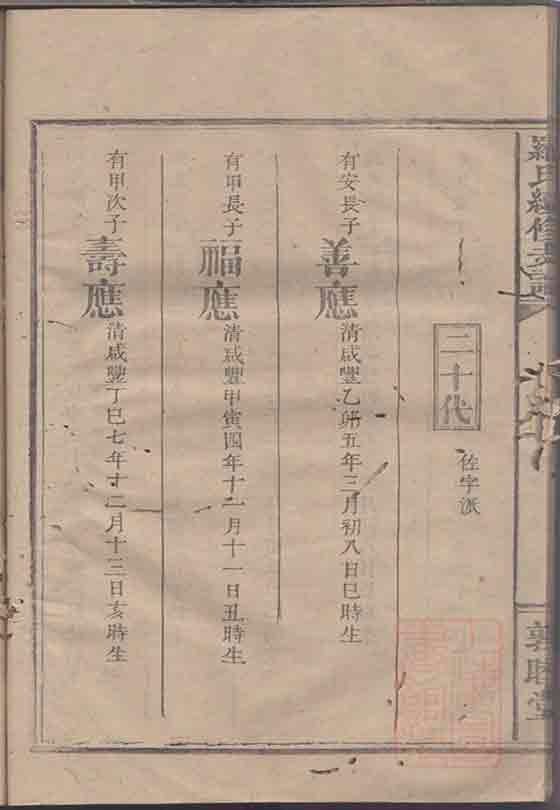 羅氏續修支譜
敦睦堂
二十代
佐字派
有安長子善應清咸豐乙卯五年三月初八日巳時生
有甲長子福應清咸豐甲寅四年十一月十一日丑時生
有甲次子壽應清咸豐丁巳七年十二月十三日亥時生